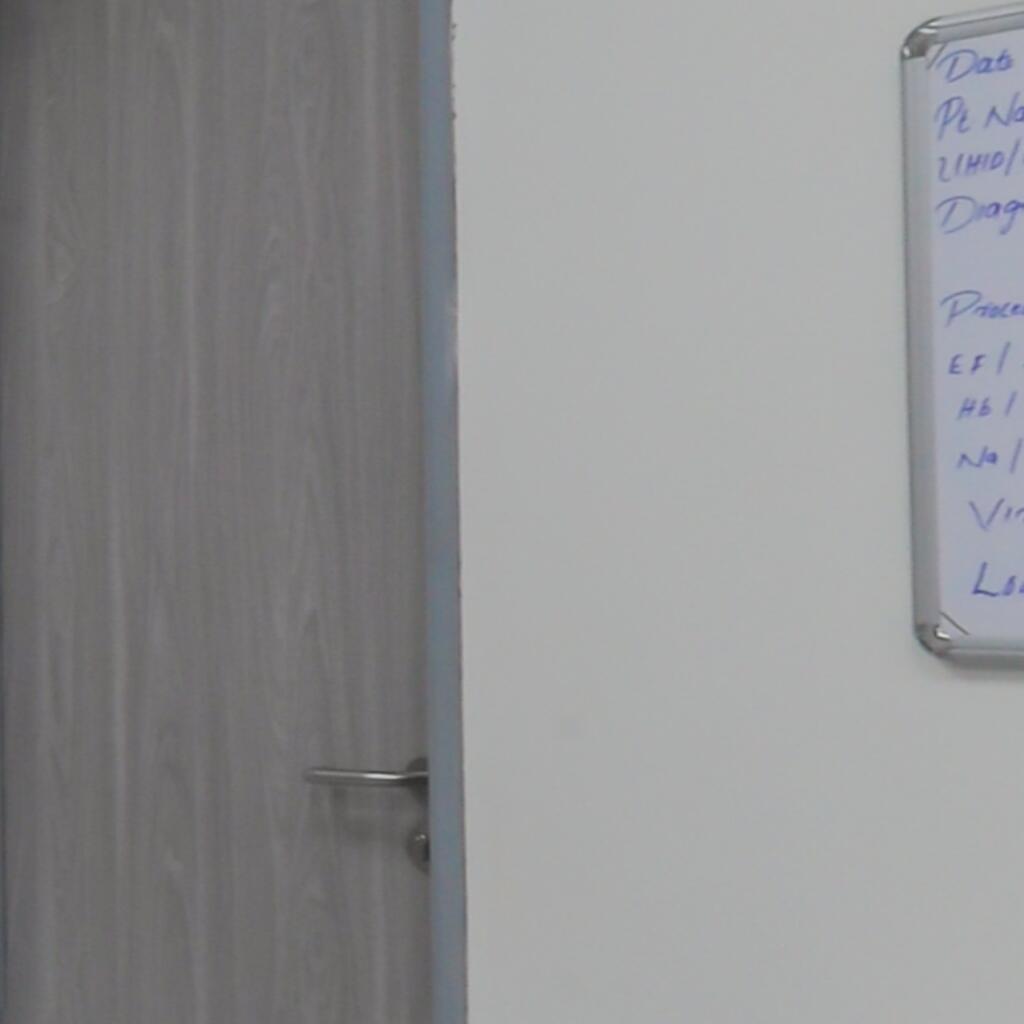 Date
Pt Na
UHID/
Diag
Proce
EF/
Hb/
Na/
Vir
Lo